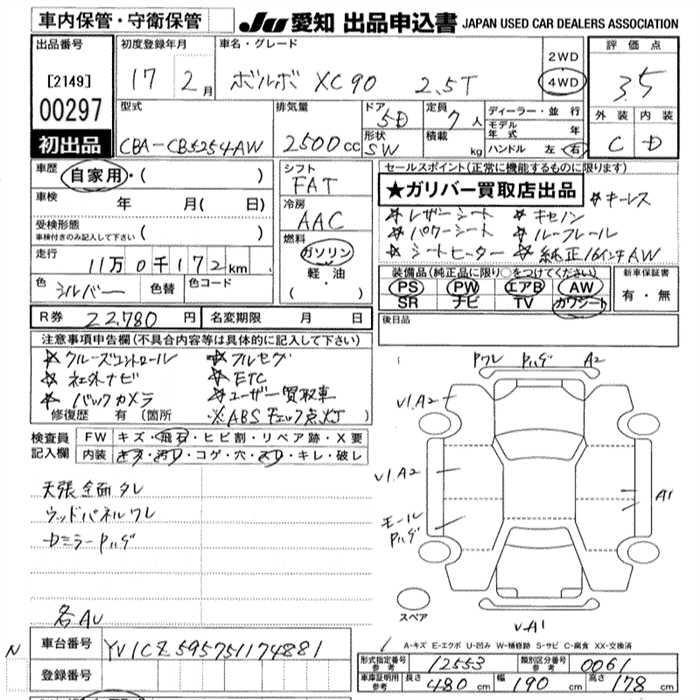 車内保管・守衛保管 JU 愛知 出品申込書 JAPAN USED CAR DEALERS ASSOCIATION
出品番号 初度登録年月 車名・グレード 評価点
[2149] 17年 2月 ボルボ XC90 2.5T 2WD 4WD 3.5
00297 型式 排気量 ドア 5D 定員 7人 ディーラー・並行 外装 内装
初出品 CBA-CB5254AW 2500cc 形状 SW 積載 kg モデル年式 年 C D
ハンドル 左・右
車歴 自家用・( ) シフト FAT セールスポイント(正常に機能するものに限ります)
★ガリバー買取店出品 ☆キーレス
車検 年 月( 日) 冷房 AAC
☆レザーシート ☆キセノン
受検形態 車検付きのみ記入して下さい ( ) 燃料 ガソリン
☆パワーシート ☆ルーフレール
走行 11万0千172km 軽・油
☆シートヒーター ☆純正16インチAW
色 シルバー 色替 色コード ( ・ )
装備品(純正品に限り○をつけてください) 新車保証書
PS PW エアB AW 有・無
SR ナビ TV カワシート
R券 22,780円 名変期限 月 日 後日品
注意事項申告欄(不具合内容等は具体的に記入して下さい)
☆クルーズコントロール ☆フルセグ
☆社外ナビ ☆ETC
☆バックカメラ ☆ユーザー買取車
修復歴 有 (箇所 ※ABSチェック点灯)
検査員記入欄 FW キズ・飛石・ヒビ割・リペア跡・X要
内装 キズ・汚D・コゲ・穴・スD・キレ・破レ
天張全面タレ
ウッドパネルワレ
DミラーPハゲ
各AU
Pワレ Pハゲ A2
V1.A2
V1.A2
A1
モール Pハゲ
スペア
V-A1
A-キズ E-エクボ U-凹み W-補修跡 S-サビ C-腐食 XX-交換済
N 車台番号 YV1CZ595751174881
形式指定番号 参考 12553 類別区分番号 参考 0061
登録番号
車庫証明用 参考 長さ 480cm 幅 190cm 高さ 178cm